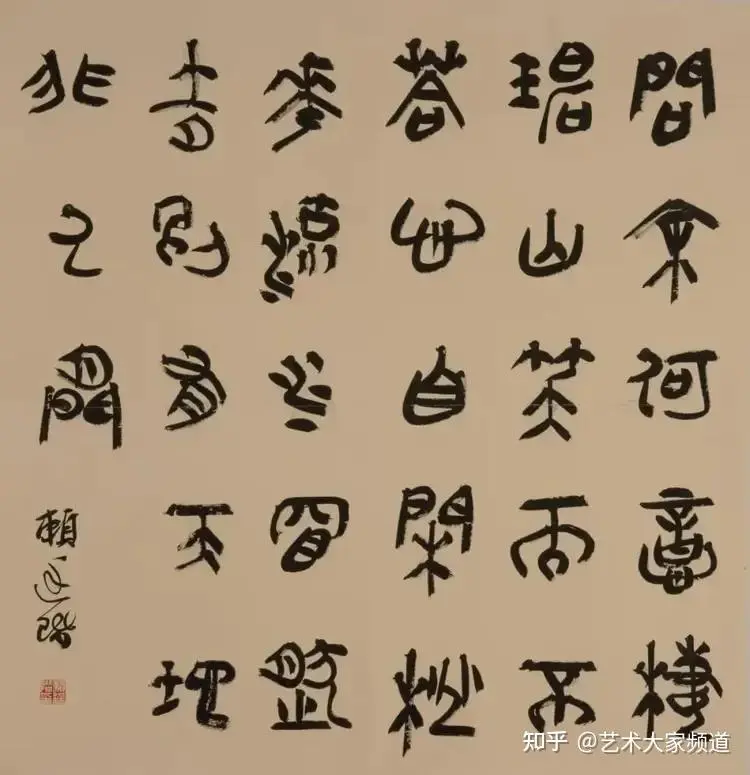 問余何適棲
碧山笑而不
荅心自閑桃
花流水窅然
去別有天地
非人間
賴廷階
知乎 @艺术大家频道